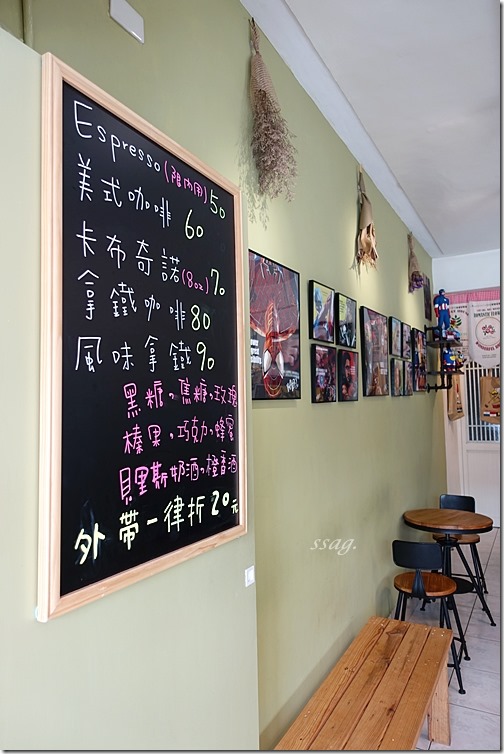 Espresso(限內用) 50
美式咖啡 60
卡布奇諾(8oz) 70
拿鐵咖啡 80
風味拿鐵 90
黑糖。焦糖。玫瑰
榛果。巧克力。蜂蜜
貝里斯奶酒。橙香酒
外帶一律折20元
ssag.